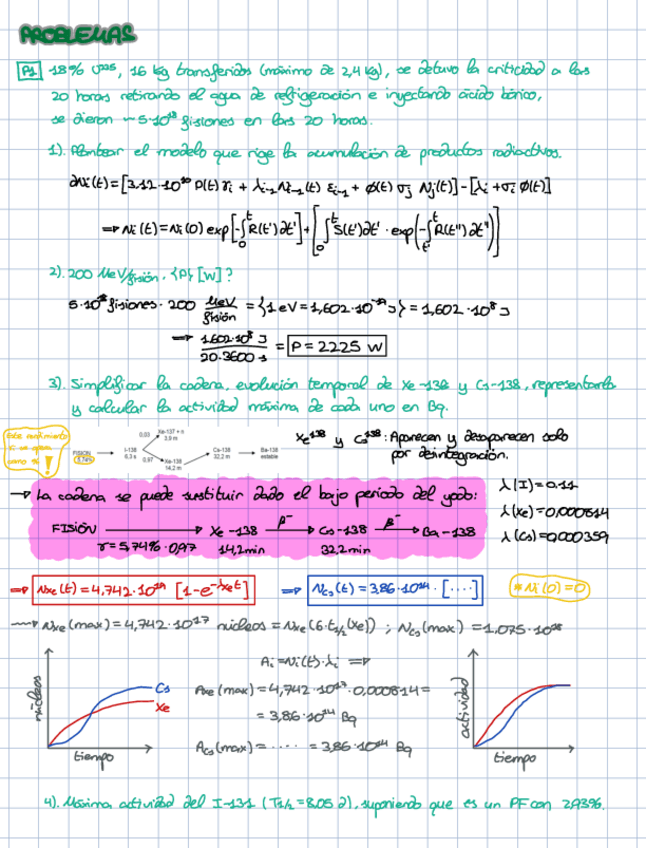 PROBLEMAS
P1 18% U²³⁵, 16 kg transferidos (máximo de 2,4 kg), se detuvo la criticidad a las
20 horas retirando el agua de refrigeración e inyectando ácido bórico,
se dieron ~5·10¹⁸ fisiones en las 20 horas.
1). Plantear el modelo que rige la acumulación de productos radiactivos.
∂Ni(t) = [3.12·10¹⁰ P(t) γi + λi-1 Ni-1(t) εi-1 + ϕ(t) σj Nj(t)] - [λi + σi ϕ(t)]
⇒ Ni(t) = Ni(0) exp[-∫₀ᵗ R(t')∂t'] + [∫₀ᵗ S(t')∂t' · exp(-∫ₜ'ᵗ R(t'')∂t'')]
2). 200 MeV/fisión. ¿P? [W]?
5·10¹⁸ fisiones · 200 MeV/fisión = {1 eV = 1,602·10⁻¹⁹ J} = 1,602·10⁸ J
⇒ 1.602·10⁸ J / 20·3600 s = P = 2225 W
3). Simplificar la cadena, evolución temporal de Xe-138 y Cs-138, representarla
y calcular la actividad máxima de cada uno en Bq.
Xe¹³⁸ y Cs¹³⁸: Aparecen y desaparecen solo
por desintegración.
0,03 Xe-137 + n
3,9 m
FISION 5,74% I-138 6,3 s
0,97 Xe-138 14,2 m
Cs-138 32,2 m
Ba-138 estable
→ La cadena se puede sustituir dado el bajo periodo del yodo:
FISIÓN → Xe-138 β⁻→ Cs-138 β⁻→ Ba-138
γ = 5,74% · 0,97 14,2 min 32,2 min
λ(I) = 0.11
λ(Xe) = 0,000814
λ(Cs) = 0,000359
⇒ Nxe(t) = 4,742·10¹⁷ [1-e^-λxe t] ⇒ Ncs(t) = 3,86·10¹⁴ · [....] * Ni(0) = 0
Nxe(max) = 4,742·10¹⁷ núcleos = Nxe(6·t1/2(Xe)) ; Ncs(max) = 1,075·10¹⁸
Ai = Ni(t)·λi ⇒
Axe(max) = 4,742·10¹⁷ · 0,000814 =
= 3,86·10¹⁴ Bq
Acs(max) = ..... = 3,86·10¹⁴ Bq
núcleos
Cs
Xe
tiempo
actividad
tiempo
4). Máxima actividad del I-131 (T1/2 = 8,05 d), suponiendo que es un PF con 2,93%.